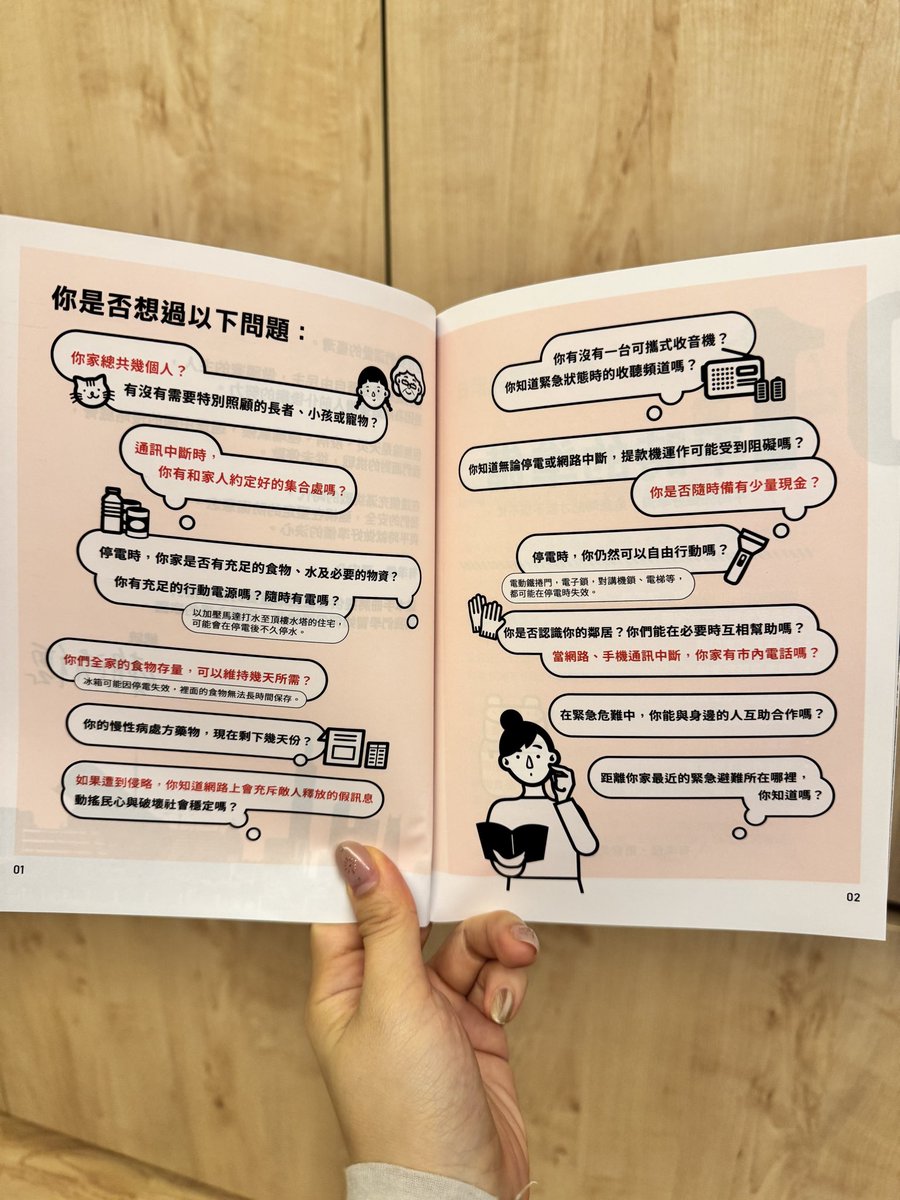 你是否想過以下問題：
你家總共幾個人？
有沒有需要特別照顧的長者、小孩或寵物？
通訊中斷時，
你有和家人約定好的集合處嗎？
停電時，你家是否有充足的食物、水及必要的物資？
你有充足的行動電源嗎？隨時有電嗎？
以加壓馬達打水至頂樓水塔的住宅，
可能會在停電後不久停水。
你們全家的食物存量，可以維持幾天所需？
冰箱可能因停電失效，裡面的食物無法長時間保存。
你的慢性病處方藥物，現在剩下幾天份？
如果遭到侵略，你知道網路上會充斥敵人釋放的假訊息
動搖民心與破壞社會穩定嗎？
01
你有沒有一台可攜式收音機？
你知道緊急狀態時的收聽頻道嗎？
你知道無論停電或網路中斷，提款機運作可能受到阻礙嗎？
你是否隨時備有少量現金？
停電時，你仍然可以自由行動嗎？
電動鐵捲門，電子鎖，對講機鎖、電梯等，
都可能在停電時失效。
你是否認識你的鄰居？你們能在必要時互相幫助嗎？
當網路、手機通訊中斷，你家有市內電話嗎？
在緊急危難中，你能與身邊的人互助合作嗎？
距離你家最近的緊急避難所在哪裡，
你知道嗎？
02